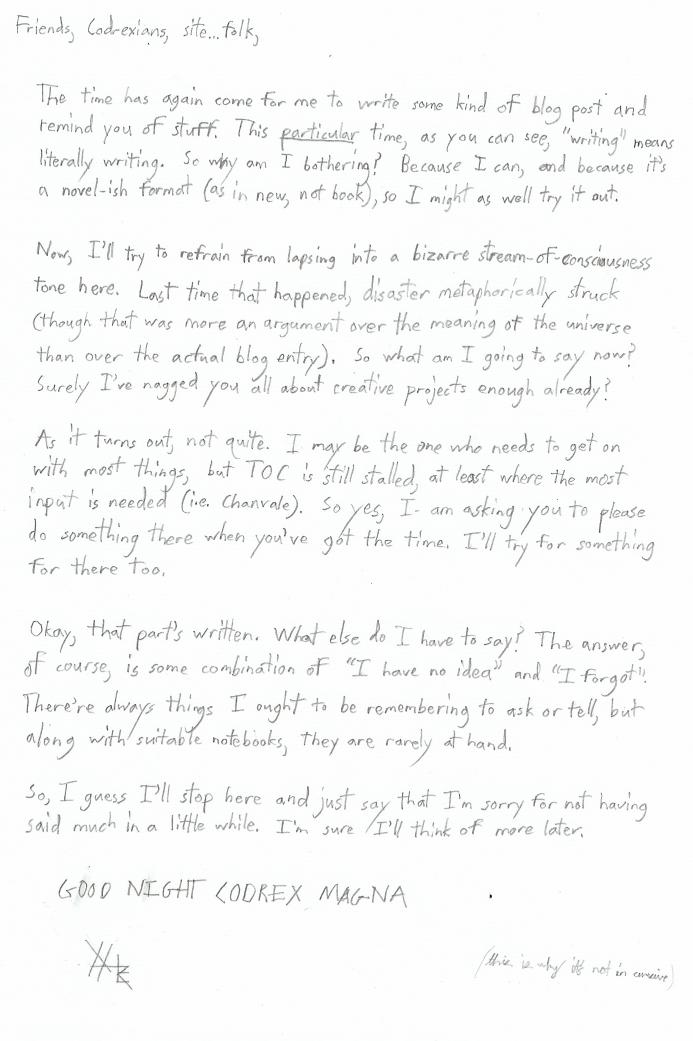 Friends, Codrexians, site...folk,
The time has again come for me to write some kind of blog post and
remind you of stuff. This particular time, as you can see, "writing" means
literally writing. So why am I bothering? Because I can, and because it's
a novel-ish format (as in new, not book), so I might as well try it out.
Now, I'll try to refrain from lapsing into a bizarre stream-of-consciousness
tone here. Last time that happened, disaster metaphorically struck
(though that was more an argument over the meaning of the universe
than over the actual blog entry). So what am I going to say now?
Surely I've nagged you all about creative projects enough already?
As it turns out, not quite. I may be the one who needs to get on
with most things, but TOC is still stalled, at least where the most
input is needed (i.e. Chanvale). So yes, I am asking you to please
do something there when you've got the time. I'll try for something
for there too.
Okay, that part's written. What else do I have to say? The answer,
of course, is some combination of "I have no idea" and "I forgot".
There're always things I ought to be remembering to ask or tell, but
along with suitable notebooks, they are rarely at hand.
So, I guess I'll stop here and just say that I'm sorry for not having
said much in a little while. I'm sure I'll think of more later.
GOOD NIGHT CODREX MAGNA
(this is why it's not in cursive)